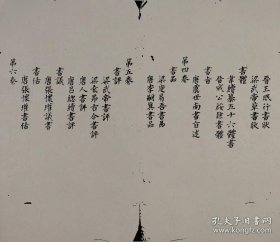 晉王珉行書狀
梁武帝草書狀
書體
韋續纂五十六體書
晉成公綏隸書體
唐虞世南書旨述
第四卷
書品
梁庾肩吾書品
唐李嗣真書品
第五卷
書評
梁武帝書評
梁袁昂古今書評
唐人書評
唐呂總續書評
書議
唐張懷瓘議書
書估
唐張懷瓘書估
第六卷
孔夫子旧书网